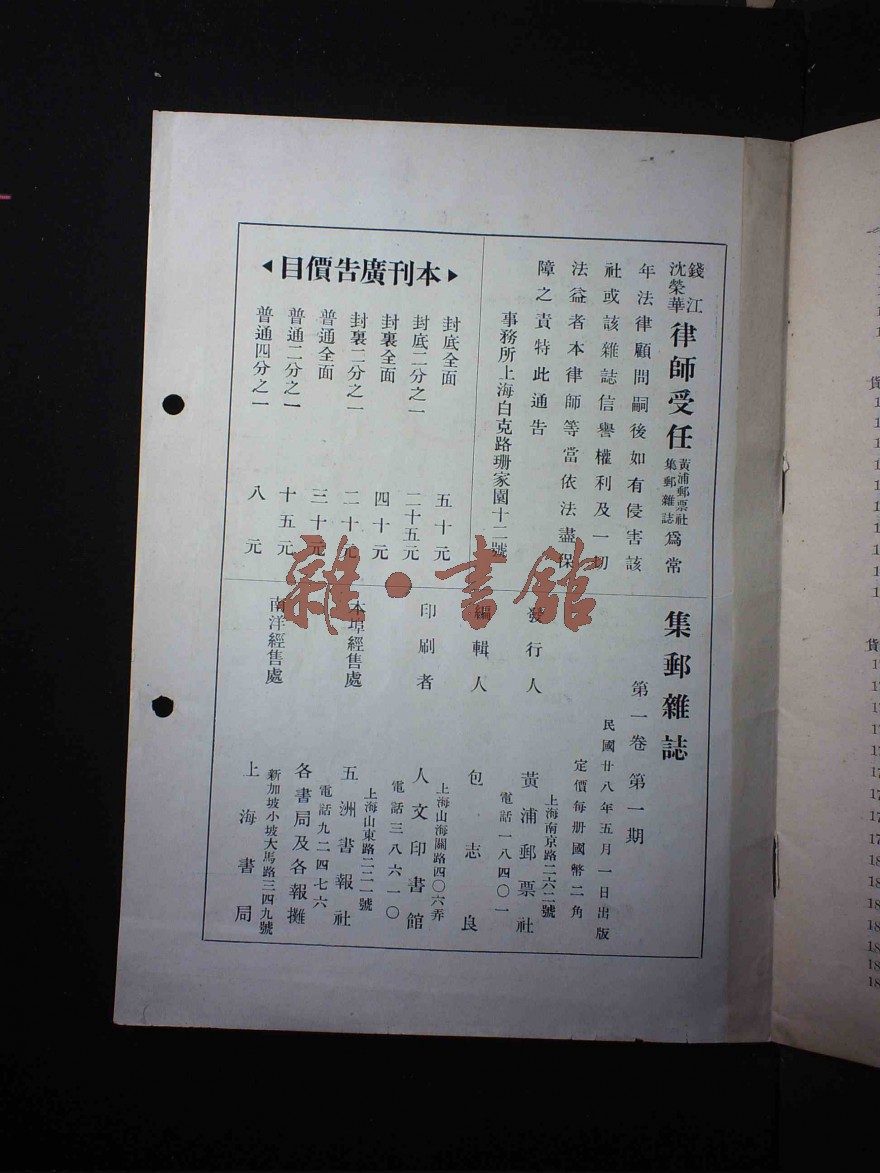 錢江
沈榮華
律師受任黃浦郵票社集郵雜誌為常
年法律顧問嗣後如有侵害該
社或該雜誌信譽權利及一切
法益者本律師等當依法盡保
障之責特此通告
事務所上海白克路珊家園十二號
本刊廣告價目
封底全面 五十元
封底二分之一 二十五元
封裏全面 四十元
封裏二分之一 二十元
普通全面 三十元
普通二分之一 十五元
普通四分之一 八元
集郵雜誌
第一卷 第一期
民國廿八年五月一日出版
定價每册國幣二角
發行人 黃浦郵票社
上海南京路二六二號
電話一八四〇一
編輯人 包志良
印刷者 人文印書館
上海山海關路四〇六弄
電話三八六一〇
本埠經售處 五洲書報社
上海山東路二二一號
電話九二四七六
各書局及各報攤
南洋經售處 上海書局
新加坡小坡大馬路三四九號
雜·書館